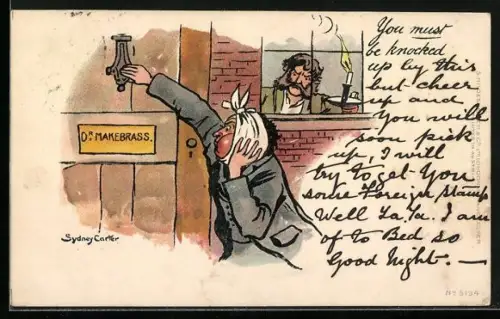 Dr MAKEBRASS.
Sydney Carter
You must
be knocked
up by this
but cheer
up and
You will
soon pick
up, I will
try to get You
some Foreign Stamps
Well Ta. Ta. I am
of to Bed so
Good Night. —
No 5134